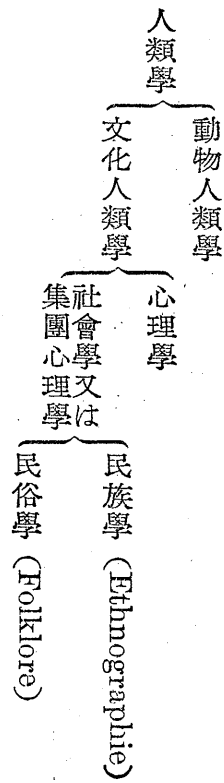 人類學
動物人類學
文化人類學
心理學
社會學又は
集團心理學
民族學 (Ethnographie)
民俗學 (Folklore)